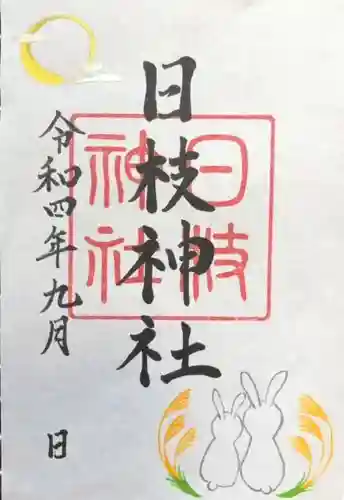 日枝神社
日枝
神社
令和四年九月 日